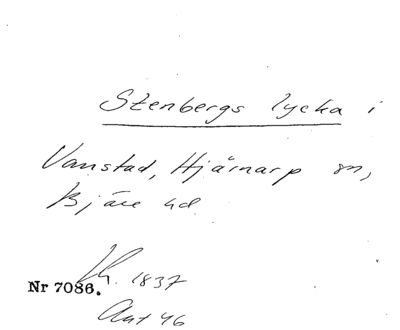 Stenbergs lycka i
Vanstad, Hjärnarp sn,
Bjäre hd
Lh. 1837
Nr 7086.
Akt 46